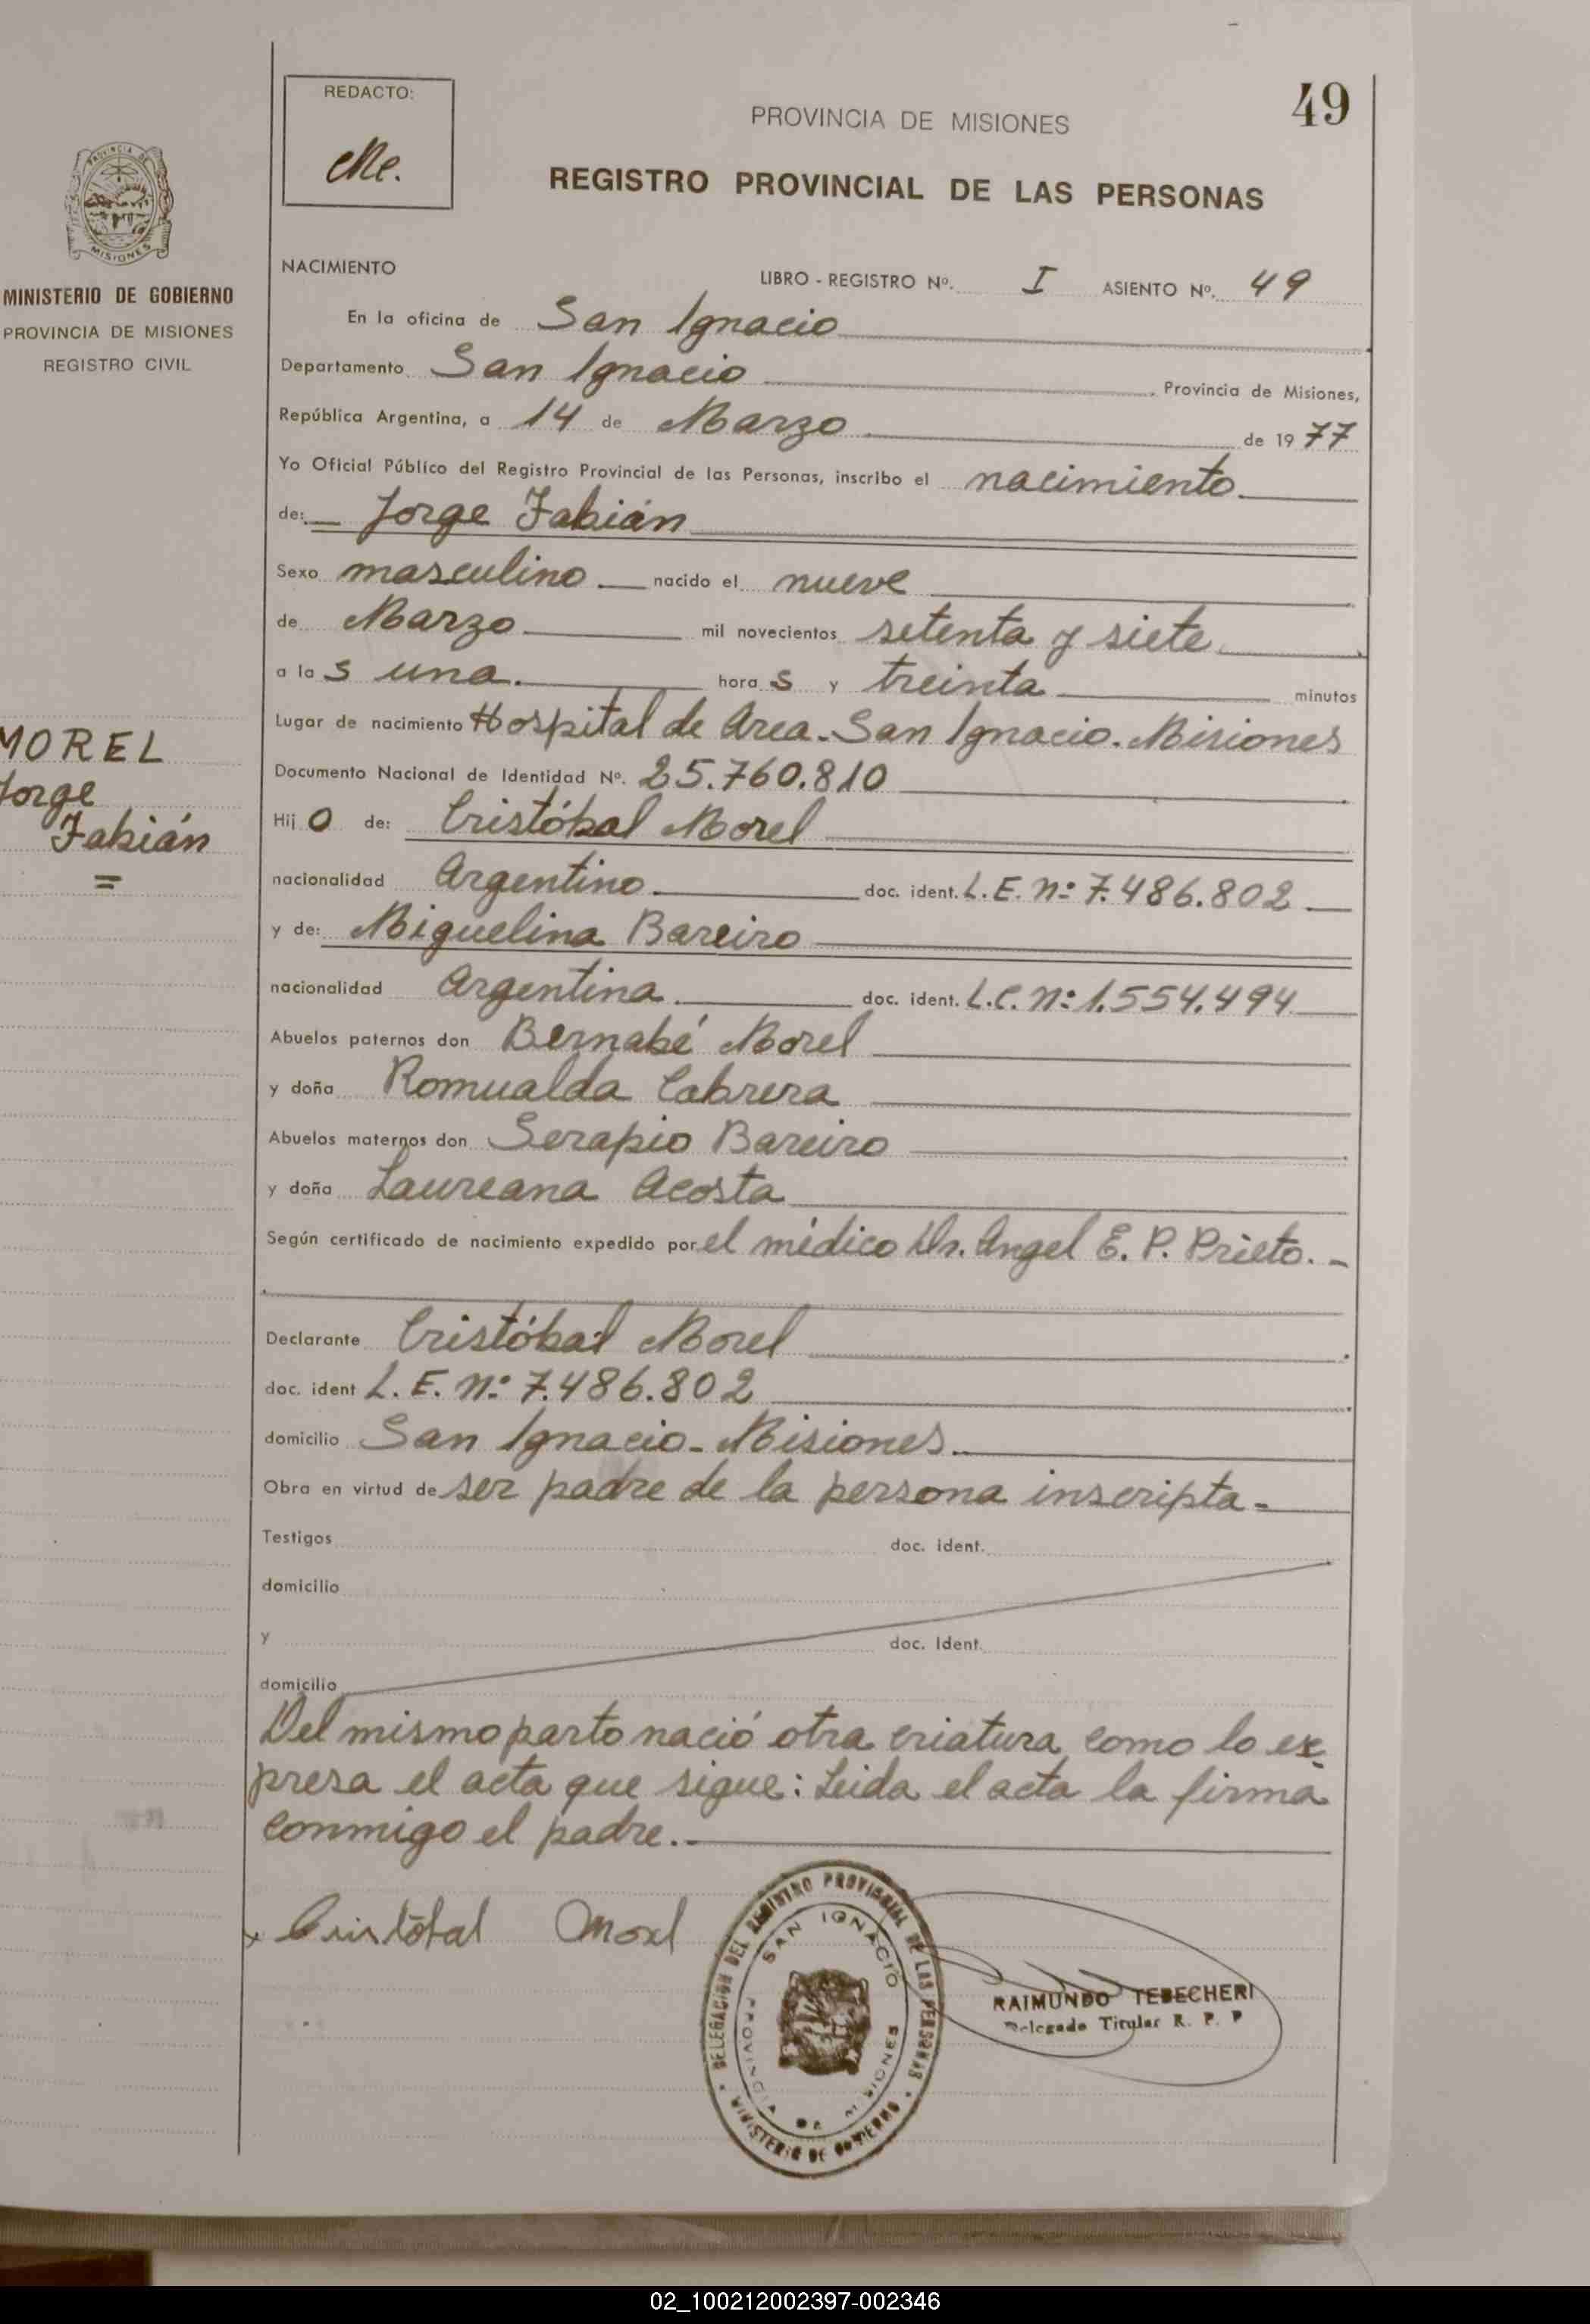 49
REDACTO:
Me.
PROVINCIA DE MISIONES
REGISTRO PROVINCIAL DE LAS PERSONAS
PROVINCIA DE
MISIONES
MINISTERIO DE GOBIERNO
PROVINCIA DE MISIONES
REGISTRO CIVIL
NACIMIENTO LIBRO - REGISTRO Nº. I ASIENTO Nº. 49
En la oficina de San Ignacio
Departamento San Ignacio . Provincia de Misiones,
República Argentina, a 14 de Marzo de 1977
Yo Oficial Público del Registro Provincial de las Personas, inscribo el nacimiento
de: Jorge Fabián
Sexo masculino nacido el nueve
de Marzo mil novecientos setenta y siete
a las una. horas y treinta minutos
Lugar de nacimiento Hospital de Area - San Ignacio. Misiones
Documento Nacional de Identidad Nº. 25.760.810
MOREL
Jorge
Fabián
=
Hijo de: Cristóbal Morel
nacionalidad Argentino doc. ident. L.E. Nº 7.486.802
y de: Miguelina Bareiro
nacionalidad Argentina doc. ident. L.C. Nº 1.554.494
Abuelos paternos don Bernabé Morel
y doña Romualda Cabrera
Abuelos maternos don Serapio Bareiro
y doña Laureana Acosta
Según certificado de nacimiento expedido por el médico Dr. Angel E. P. Prieto. -
Declarante Cristóbal Morel
doc. ident L. E. Nº 7.486.802
domicilio San Ignacio - Misiones.
Obra en virtud de ser padre de la persona inscripta -
Testigos doc. ident.
domicilio
y doc. Ident.
domicilio
Del mismo parto nació otra criatura como lo ex-
presa el acta que sigue: Leida el acta la firma
conmigo el padre. -
x Cristóbal Morel
DELEGACION DEL REGISTRO PROVINCIAL DE LAS PERSONAS
SAN IGNACIO
PROVINCIA DE MISIONES
MINISTERIO DE GOBIERNO
RAIMUNDO TEBECHERI
Delegado Titular R. P. P
02_100212002397-002346